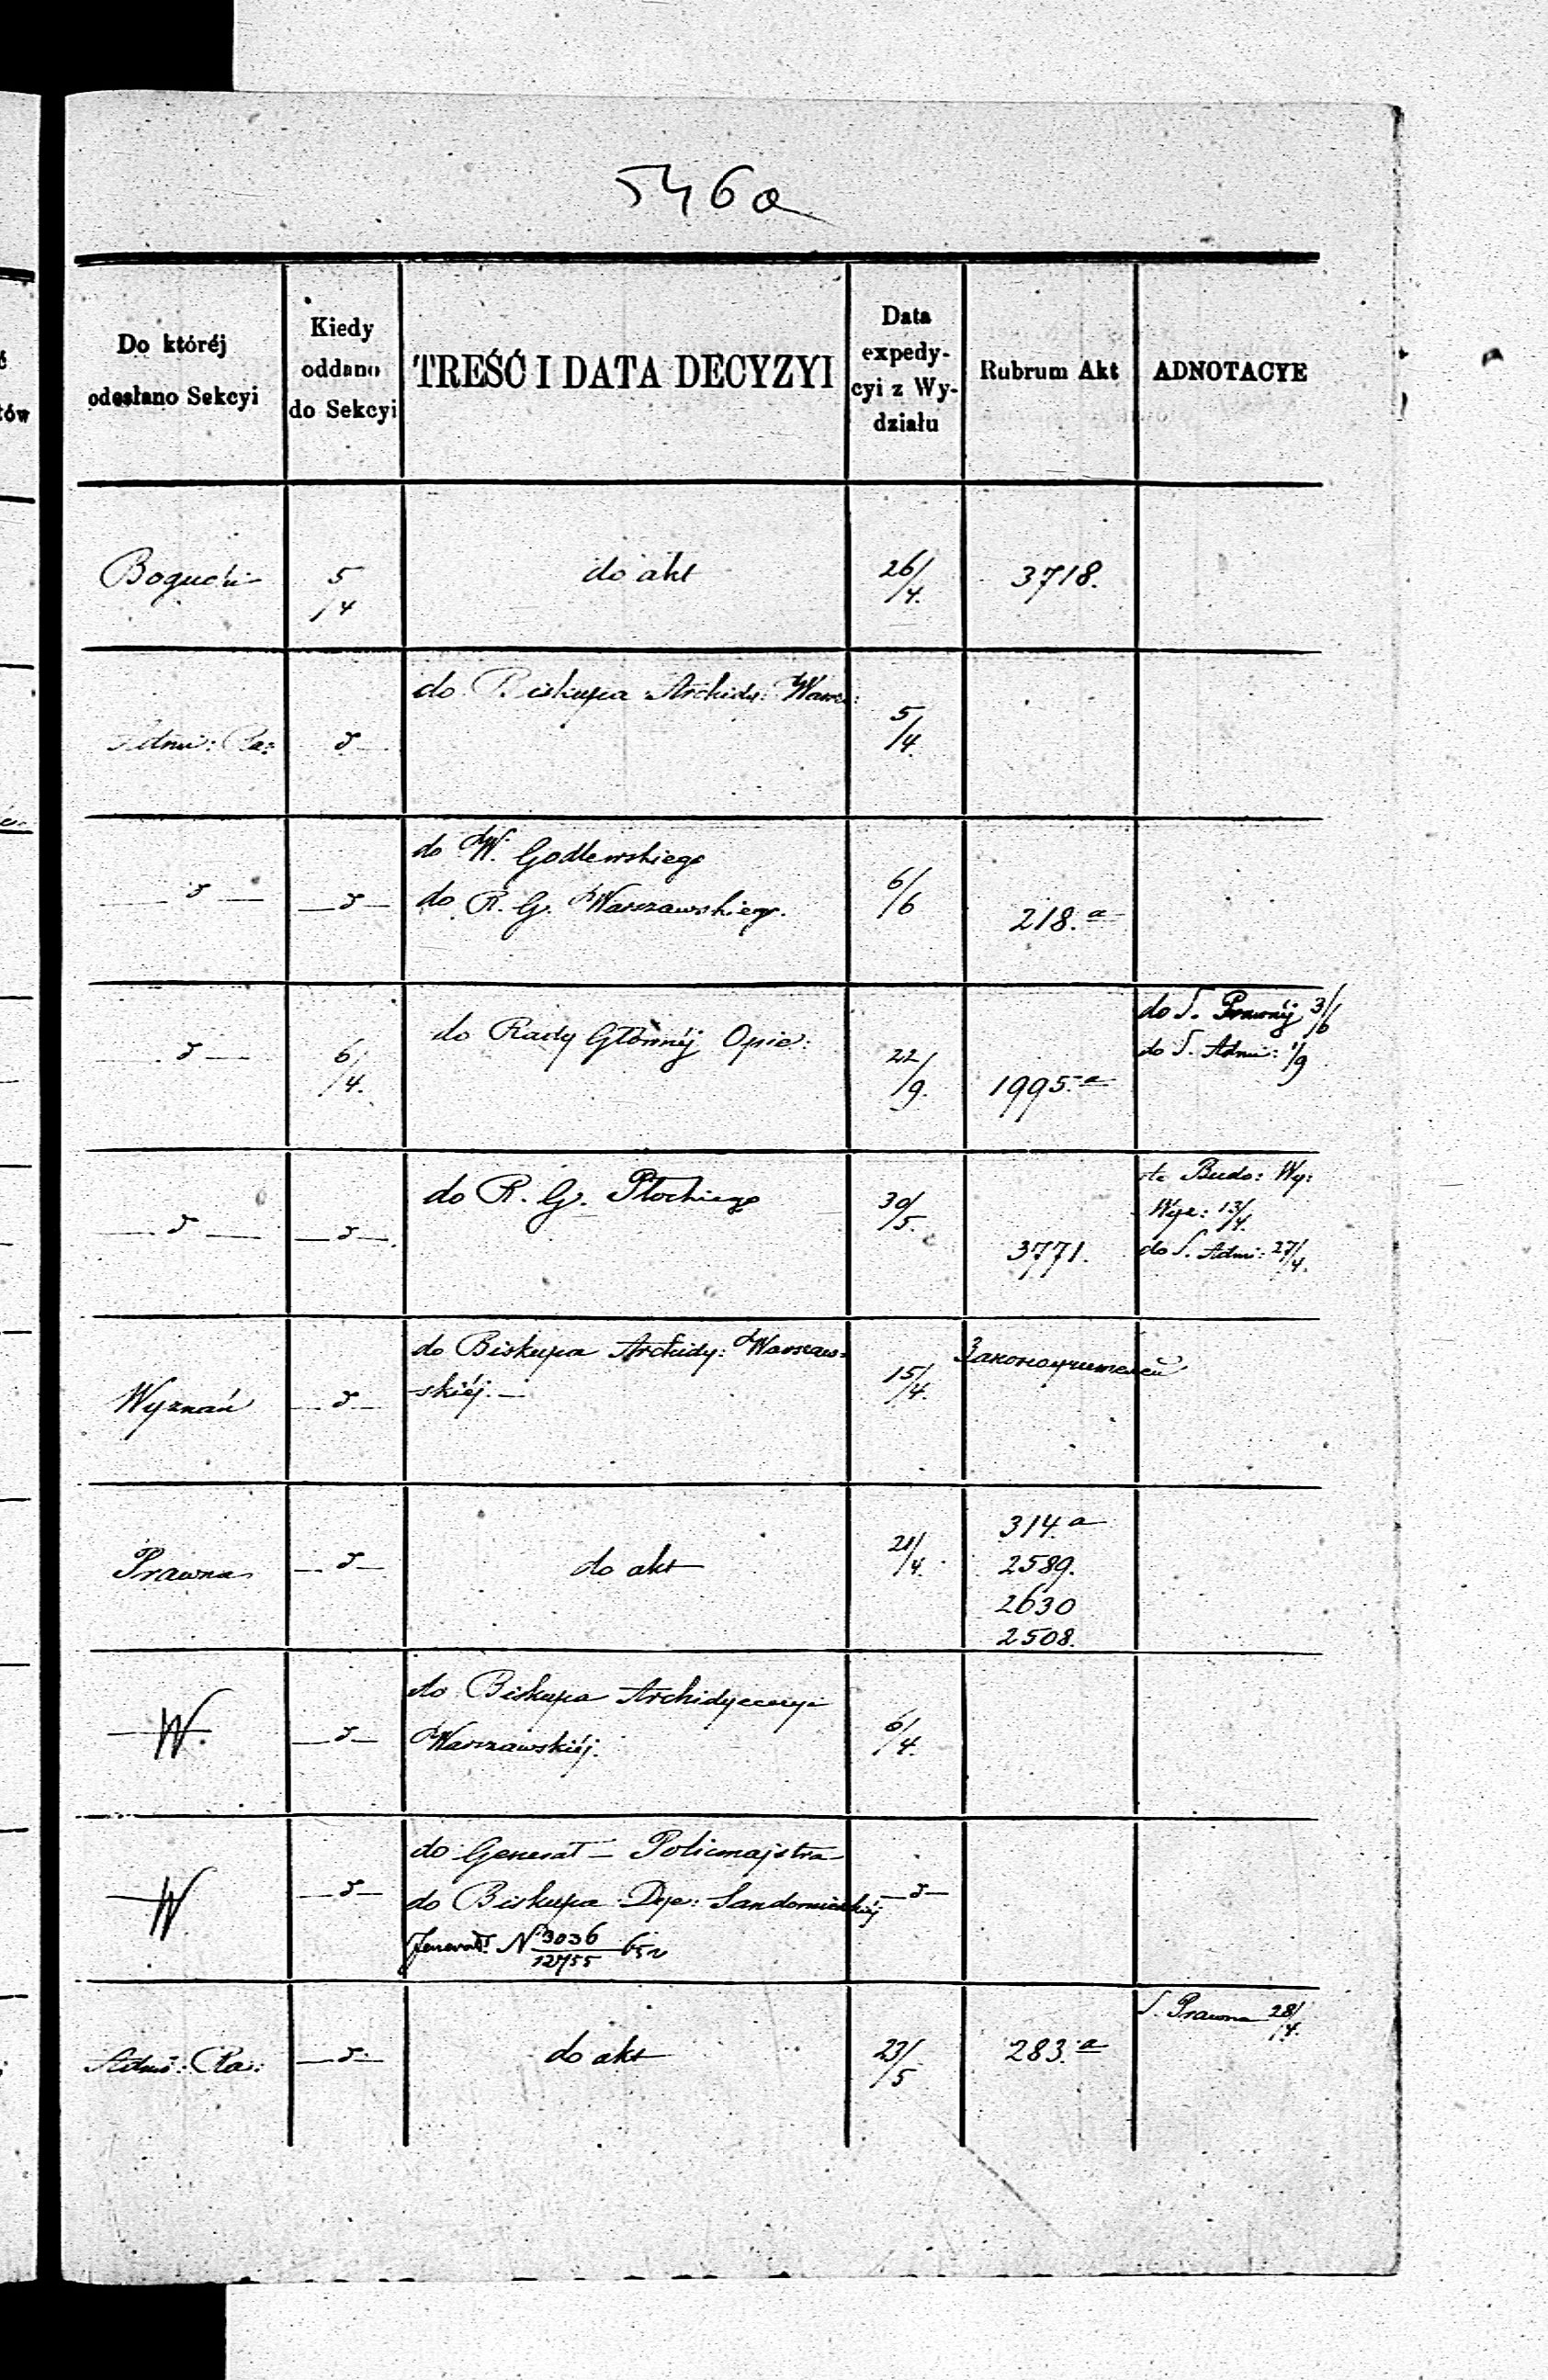 546a
Do któréj
odesłano Sekcyi
Kiedy
oddano
do Sekcyi
TREŚĆ I DATA DECYZYI
Data
expedy-
cyi z Wy-
działu
Rubrum Akt
ADNOTACYE
Bogucki 5/4 do akt 26/4. 3718.
do Biskupa Archidy: Warsz:
Admi: Ra: d 5/4.
do W. Godlewskiego
— d — — d — do R. G. Warszawskiego. 6/6 218.a
do S. Prawnéj 3/6
— d — 6/4. do Rady Głównéj Opie: 22/9. 1995.a do S. Admi: 1/9
Budo: Wy:
do R. G. Płockiego 30/5. Wye: 13/4.
— d — — d — 3771. do S. Admi: 27/4.
do Biskupa Archidy: Warszaw-
Законоучителей
Wyznań — d — skiéj. — 15/4.
314.a
Prawna — d — do akt 21/4. 2589.
2630
2508.
do Biskupa Archidyecezyi
W. — d — Warszawskiéj. 6/4.
do Generał — Policmajstra
W — d — do Biskupa Dye: Sandomierskiéj — d —
N 3036/12755
S. Prawna 28/4.
Admi: Ra: — d — do akt 23/5 283.a